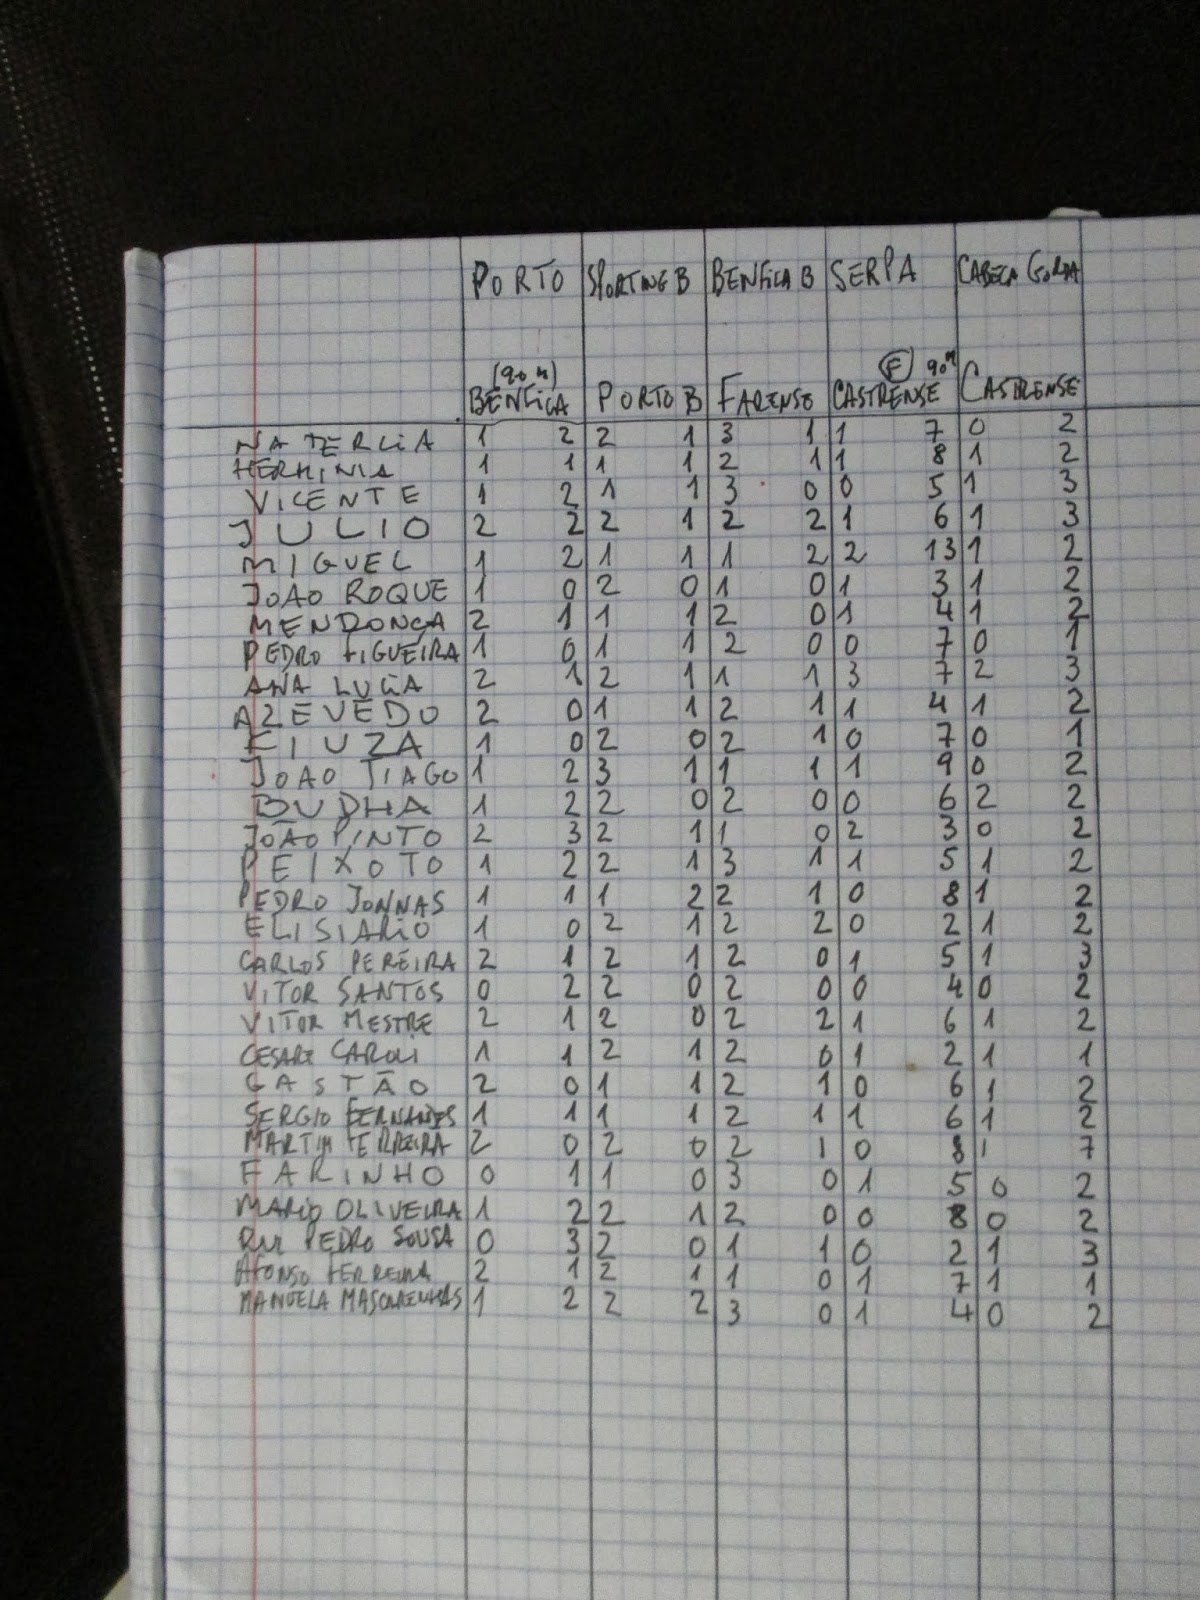 PORTO SPORTING B BENFICA B SERPA CABEÇA GORDA
(90 M) (F) 90M
BENFICA PORTO B FARENSE CASTRENSE CASTRENSE
NATERCIA 1 2 2 1 3 1 1 7 0 2
HERMINIA 1 1 1 1 2 1 1 8 1 2
VICENTE 1 2 1 1 3 0 0 5 1 3
JULIO 2 2 2 1 2 2 1 6 1 3
MIGUEL 1 2 1 1 1 2 2 13 1 2
JOAO ROQUE 1 0 2 0 1 0 1 3 1 2
MENDONÇA 2 1 1 1 2 0 1 4 1 2
PEDRO FIGUEIRA 1 0 1 1 2 0 0 7 0 1
ANA LUCIA 2 1 2 1 1 1 3 7 2 3
AZEVEDO 2 0 1 1 2 1 1 4 1 2
FIUZA 1 0 2 0 2 1 0 7 0 1
JOAO TIAGO 1 2 3 1 1 1 1 9 0 2
BUDHA 1 2 2 0 2 0 0 6 2 2
JOÃO PINTO 2 3 2 1 1 0 2 3 0 2
PEIXOTO 1 2 2 1 3 1 1 5 1 2
PEDRO JONNAS 1 1 1 2 2 1 0 8 1 2
ELISIARIO 1 0 2 1 2 2 0 2 1 2
CARLOS PEREIRA 2 1 2 1 2 0 1 5 1 3
VITOR SANTOS 0 2 2 0 2 0 0 4 0 2
VITOR MESTRE 2 1 2 0 2 2 1 6 1 2
CESARE CAROLI 1 1 2 1 2 0 1 2 1 1
GASTÃO 2 0 1 1 2 1 0 6 1 2
SERGIO FERNANDES 1 1 1 1 2 1 1 6 1 2
MARTIM FERREIRA 2 0 2 0 2 1 0 8 1 7
FARINHO 0 1 1 0 3 0 1 5 0 2
MARIO OLIVEIRA 1 2 2 1 2 0 0 8 0 2
RUI PEDRO SOUSA 0 3 2 0 1 1 0 2 1 3
AFONSO FERREIRA 2 1 2 1 1 0 1 7 1 1
MANUELA MASCARENHAS 1 2 2 2 3 0 1 4 0 2